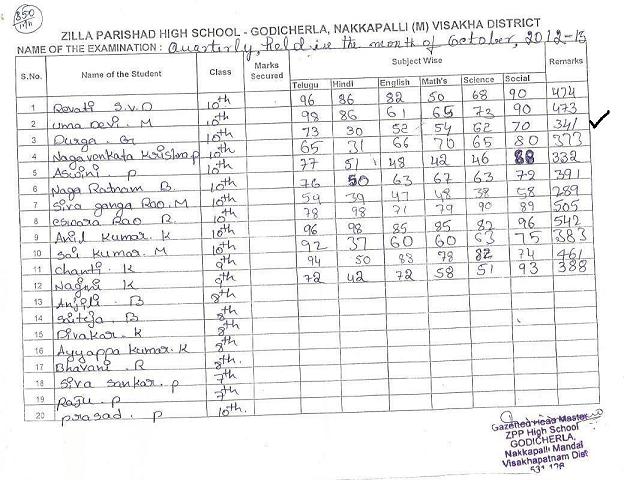 850
ZILLA PARISHAD HIGH SCHOOL - GODICHERLA, NAKKAPALLI (M) VISAKHA DISTRICT
NAME OF THE EXAMINATION : Quarterly, held in the month of October, 2012-13
S.No. Name of the Student Class Marks Secured Subject Wise Remarks
Telugu Hindi English Math's Science Social
1 Revati S.V.D 10th 96 86 82 50 68 90 474
2 Uma Devi. M 10th 98 86 61 65 73 90 473
3 Durga. Gr 10th 73 30 52 54 62 70 341
4 Naga venkata Krishna p 10th 65 31 66 70 65 80 373
5 Aswini P 10th 77 51 48 42 46 88 332
6 Naga Ratnam B. 10th 76 50 63 67 63 72 391
7 Siva ganga Rao. M 10th 59 39 47 48 38 58 289
8 eswara Rao R. 10th 78 98 71 79 90 89 505
9 Anil Kumar. K 10th 96 98 85 85 82 96 542
10 Sai Kumar. M 10th 92 37 60 60 63 75 383
11 Chanti. K 9th 94 50 83 78 82 74 461
12 Nagini K 9th 72 42 72 58 51 93 388
13 Anjili. B 8th
14 Sriteja. B 8th
15 Divakar. K 8th
16 Ayyappa Kumar. K 8th
17 Bhavani. R 8th.
18 Siva Sankar. p 7th
19 Raju. p 7th
20 prasad. p 10th.
Gazetted Head Master
ZPP High School
GODICHERLA,
Nakkapalli Mandal
Visakhapatnam Dist
531 126